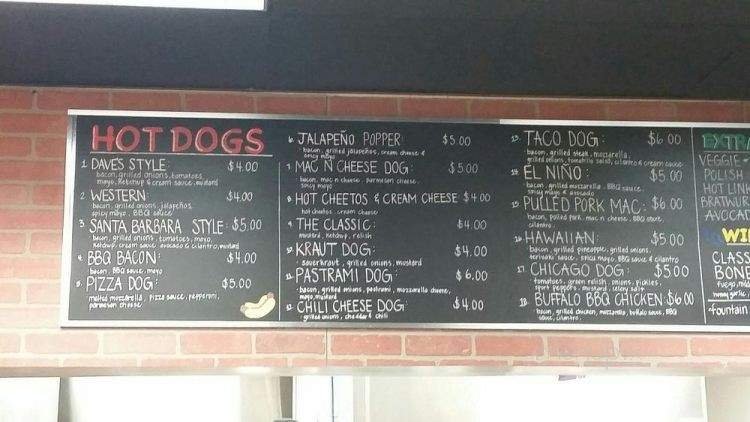 HOT DOGS
1. DAVE'S STYLE: $4.00
bacon, grilled onions, tomatoes,
mayo, ketchup & cream sauce, mustard
2. WESTERN: $4.00
bacon, grilled onions, jalapeños,
spicy mayo, BBQ sauce
3. SANTA BARBARA STYLE: $5.00
bacon, grilled onions, tomatoes, mayo,
ketchup, cream sauce, avocado & cilantro, mustard
4. BBQ BACON: $4.00
bacon, BBQ sauce, mayo
5. PIZZA DOG: $5.00
melted mozzarella, pizza sauce, pepperoni,
parmesan cheese
6. JALAPEÑO POPPER: $5.00
bacon, grilled jalapeños, cream cheese &
spicy mayo
7. MAC N CHEESE DOG: $5.00
bacon, mac n cheese, parmesan cheese,
spicy mayo
8. HOT CHEETOS & CREAM CHEESE $4.00
hot cheetos, cream cheese
9. THE CLASSIC: $4.00
mustard, ketchup, relish
10. KRAUT DOG: $4.00
sauerkraut, grilled onions, mustard
11. PASTRAMI DOG: $6.00
bacon, grilled onions, pastrami, mozzarella cheese,
mayo, mustard
12. CHILI CHEESE DOG: $4.00
grilled onions, cheddar & chili
13. TACO DOG: $6.00
bacon, grilled steak, mozzarella,
grilled onions, tomatillo salsa, cilantro & cream sauce
14. EL NIÑO: $5.00
bacon, grilled mozzarella, BBQ sauce,
spicy mayo & avocado
15. PULLED PORK MAC: $6.00
bacon, pulled pork, mac n cheese, BBQ sauce,
cilantro
16. HAWAIIAN: $5.00
bacon, grilled pineapple, grilled onions,
teriyaki sauce, spicy mayo, BBQ sauce & cilantro
17. CHICAGO DOG: $5.00
tomatoes, green relish, onions, pickles,
sport peppers, mustard, celery salt
18. BUFFALO BBQ CHICKEN: $6.00
bacon, grilled chicken, mozzarella, buffalo sauce, BBQ
sauce, cilantro
EXTRA
VEGGIE
POLISH
HOT LINK
BRATWUR
AVOCA
WI
CLASS
BONE
fuego, mild
honey garlic
fountain